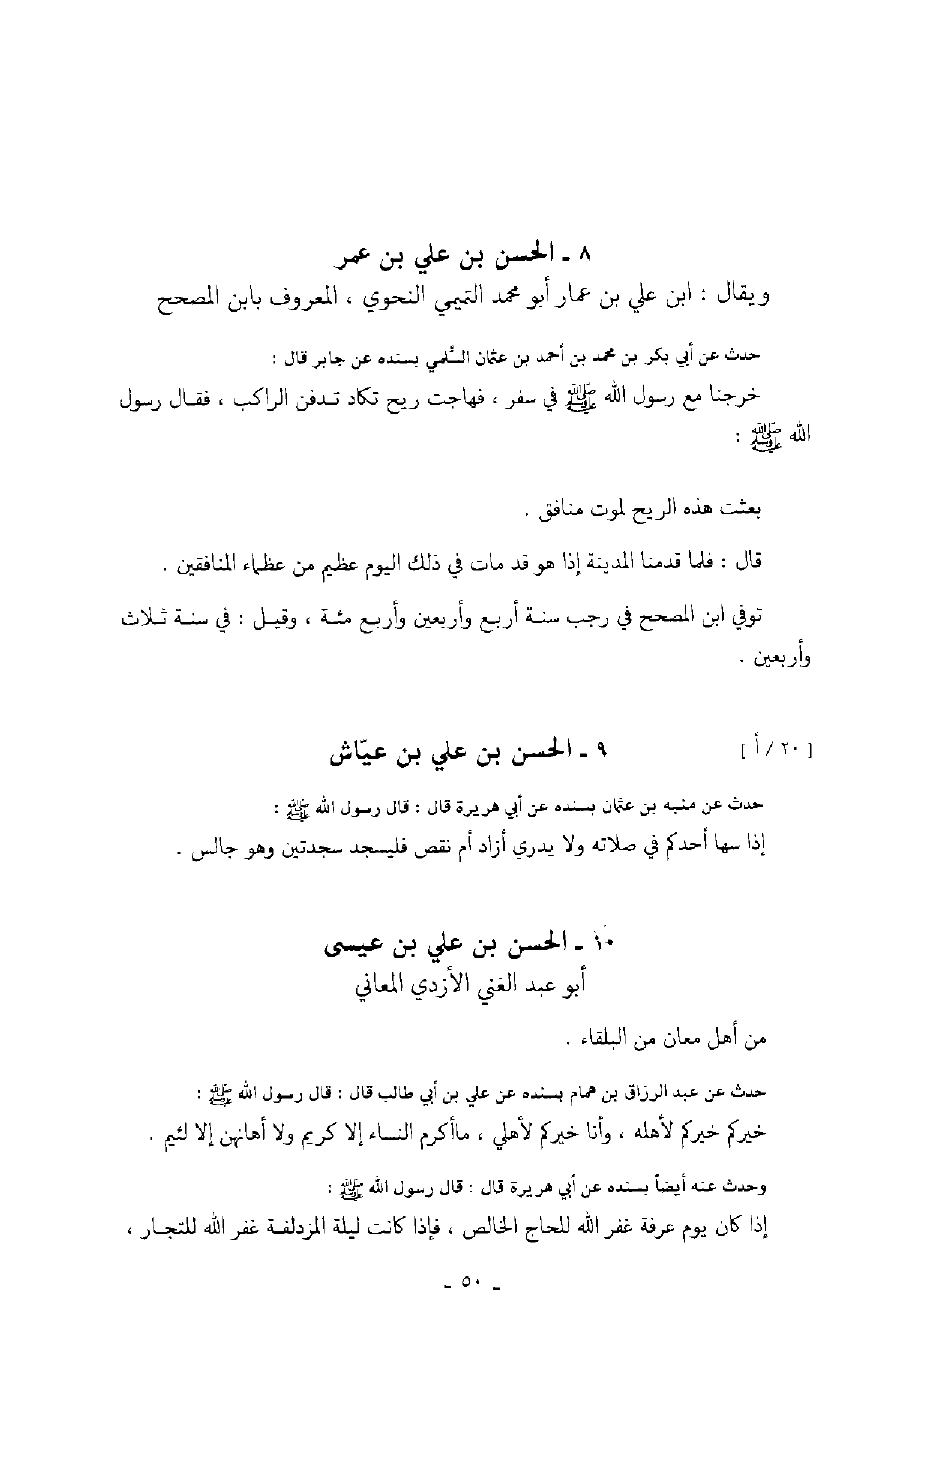 ٨ ـ الحسن بن علي بن عمر
ويقال : ابن علي بن عمار أبو محمد التميمي النحوي ، المعروف بابن المصحح
حدث عن أبي بكر بن محمد بن أحمد بن عثمان السُّلمي بسنده عن جابر قال :
خرجنا مع رسول الله ﷺ في سفر ، فهاجت ريح تكاد تدفن الراكب ، فقال رسول
الله ﷺ :
بعثت هذه الريح لموت منافق .
قال : فلما قدمنا المدينة إذا هو قد مات في ذلك اليوم عظيم من عظماء المنافقين .
توفي ابن المصحح في رجب سنة أربع وأربعين وأربع مئة ، وقيل : في سنة ثلاث
وأربعين .
[ ٢٠ / أ ] ٩ ـ الحسن بن علي بن عيّاش
حدث عن منبه بن عثمان بسنده عن أبي هريرة قال : قال رسول الله ﷺ :
إذا سها أحدكم في صلاته ولا يدري أزاد أم نقص فليسجد سجدتين وهو جالس .
١٠ ـ الحسن بن علي بن عيسى
أبو عبد الغني الأزدي المعاني
من أهل معان من البلقاء .
حدث عن عبد الرزاق بن همام بسنده عن علي بن أبي طالب قال : قال رسول الله ﷺ :
خيركم خيركم لأهله ، وأنا خيركم لأهلي ، ماأكرم النساء إلا كريم ولا أهانهن إلا لئيم .
وحدث عنه أيضاً بسنده عن أبي هريرة قال : قال رسول الله ﷺ :
إذا كان يوم عرفة غفر الله للحاج الخالص ، فإذا كانت ليلة المزدلفة غفر الله للتجار ،
ـ ٥٠ ـ